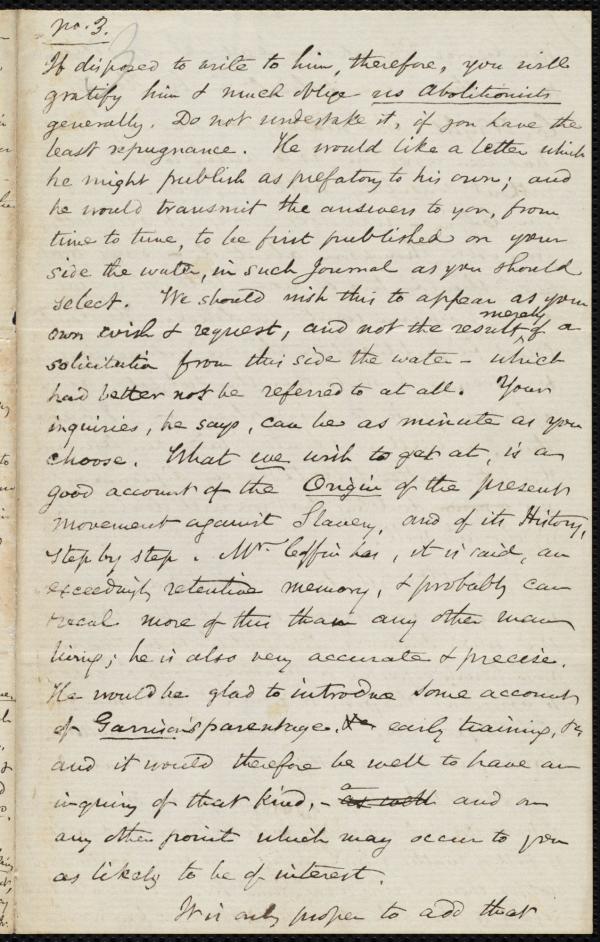 no. 3.
If disposed to write to him, therefore, you will
gratify him & much oblige us Abolitionists
generally. Do not undertake it, if you have the
least repugnance. He would like a letter which
he might publish as prefatory to his own; and
he would transmit the answers to you, from
time to time, to be first published on your
side the water, in such Journal as you should
select. We should wish this to appear as your
own wish & request, and not the result merely of a
solicitation from this side the water - which
had better not be referred to at all. Your
inquiries, he says, can be as minute as you
choose. What we wish to get at, is a
good account of the Origin of the present
movement against Slavery, and of its History,
step by step. Mr. Coffin has, it is said, an
exceedingly retentive memory, & probably can
recal more of this than any other man
living; he is also very accurate & precise.
He would be glad to introduce some account
of Garrison's parentage, early training, &c
and it would therefore be well to have an
inquiry of that kind, - as well and on
any other point which may occur to you
as likely to be of interest.
It is only proper to add that